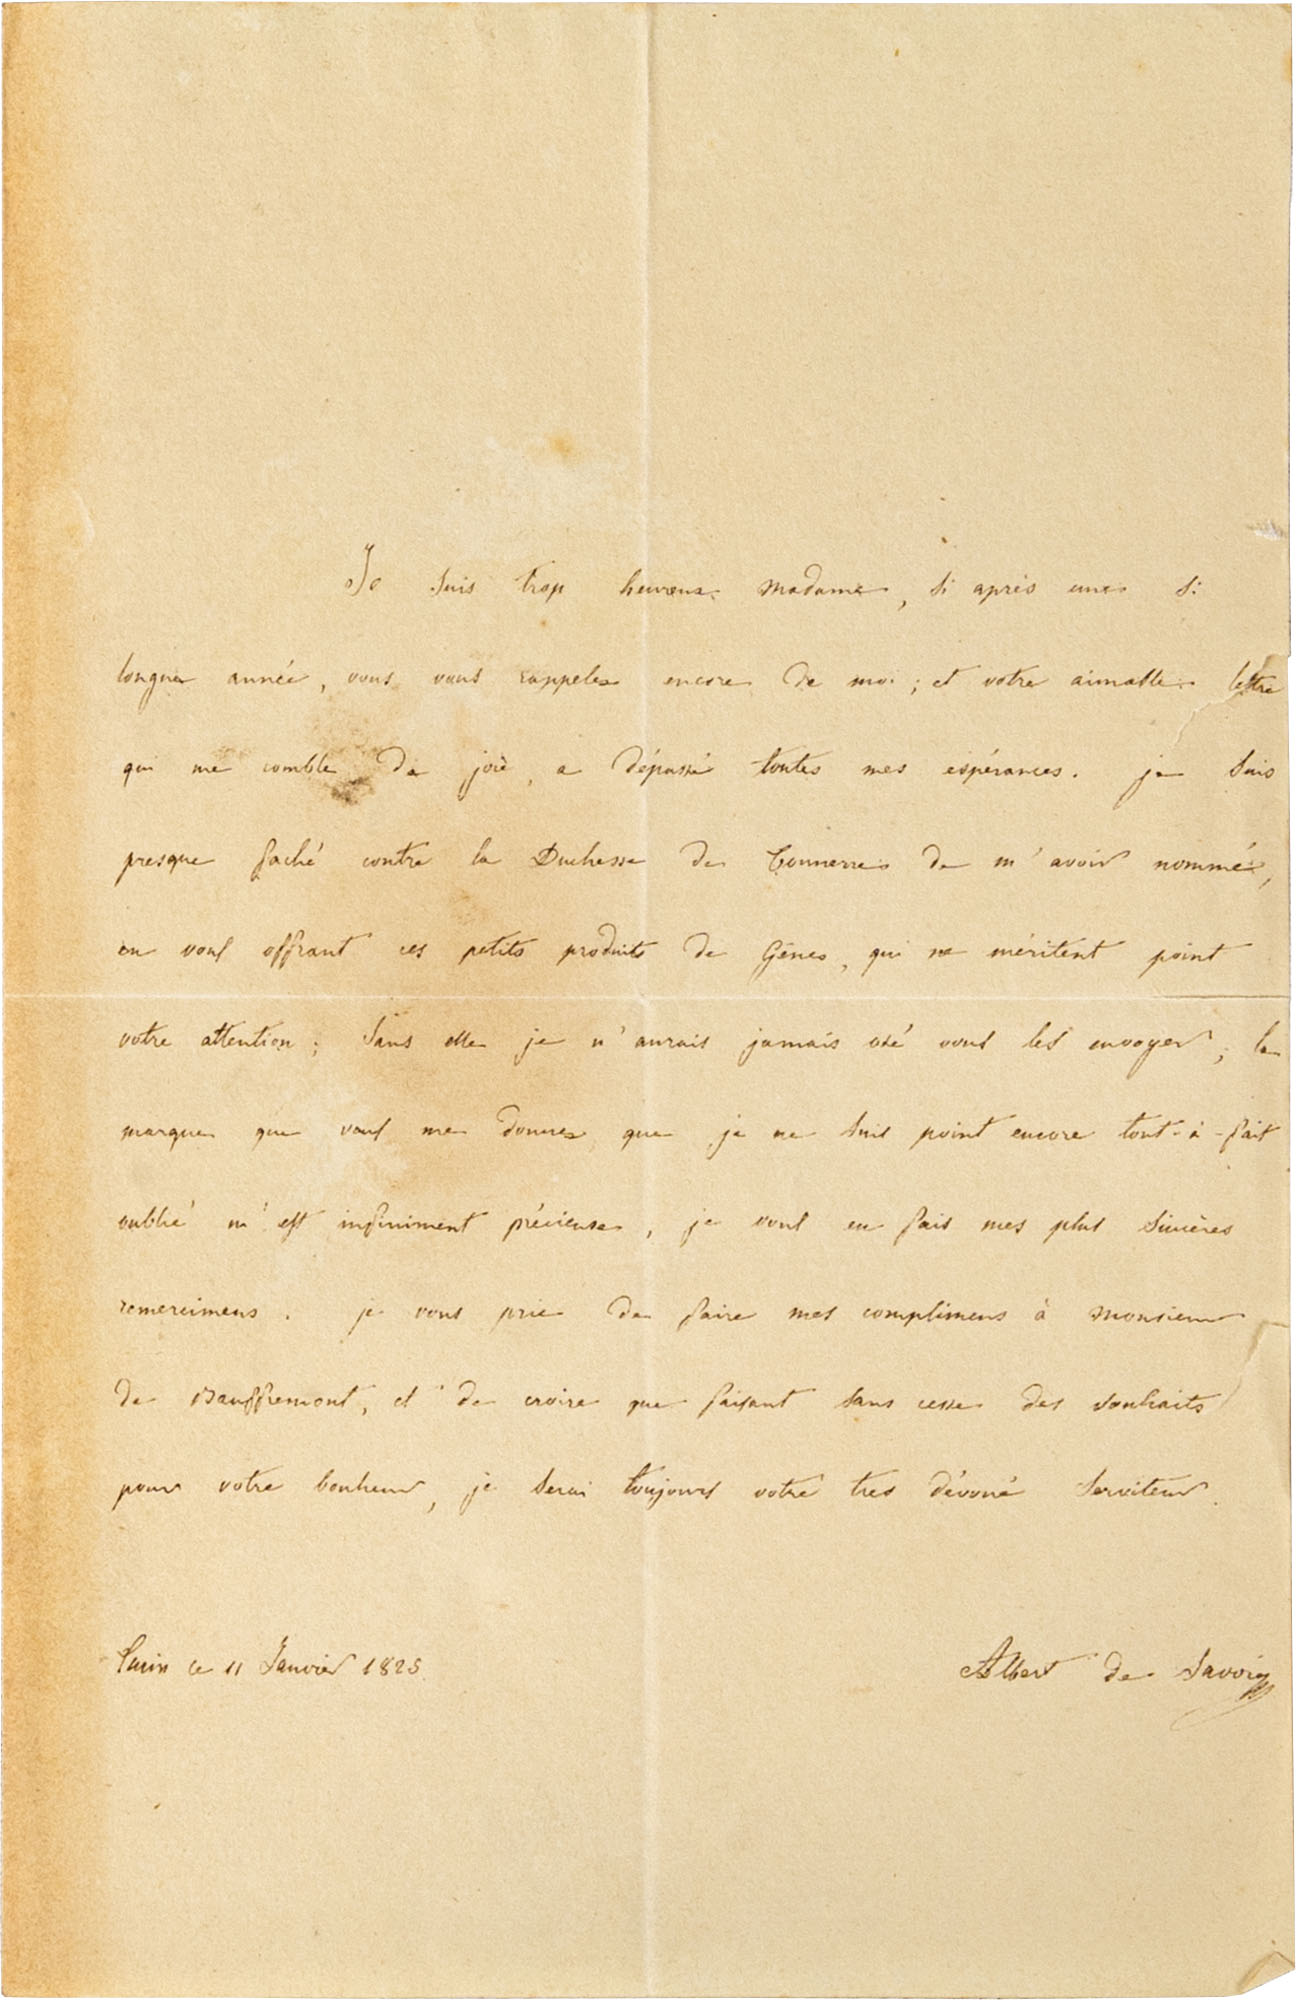 Je suis trop heureux Madame, si après une si
longue année, vous vous rappelez encore de moi ; et votre aimable lettre
qui me comble de joie, a dépassé toutes mes espérances. je suis
presque faché contre la Duchesse de Tonnerre de m'avoir nommé,
en vous offrant ces petits produits de Gênes, qui ne méritent point
votre attention ; sans elle je n'aurais jamais osé vous les envoyer ; la
marque que vous me donnez que je ne suis point encore tout-à-fait
oublié m'est infiniment précieuse, je vous en fais mes plus sincères
remercimens. je vous prie de faire mes complimens à Monsieur
de Bauffremont, et de croire que faisant sans cesse des souhaits
pour votre bonheur, je serai toujours votre tres dévoué serviteur.
Turin ce 11 Janvier 1825
Albert de Savoie